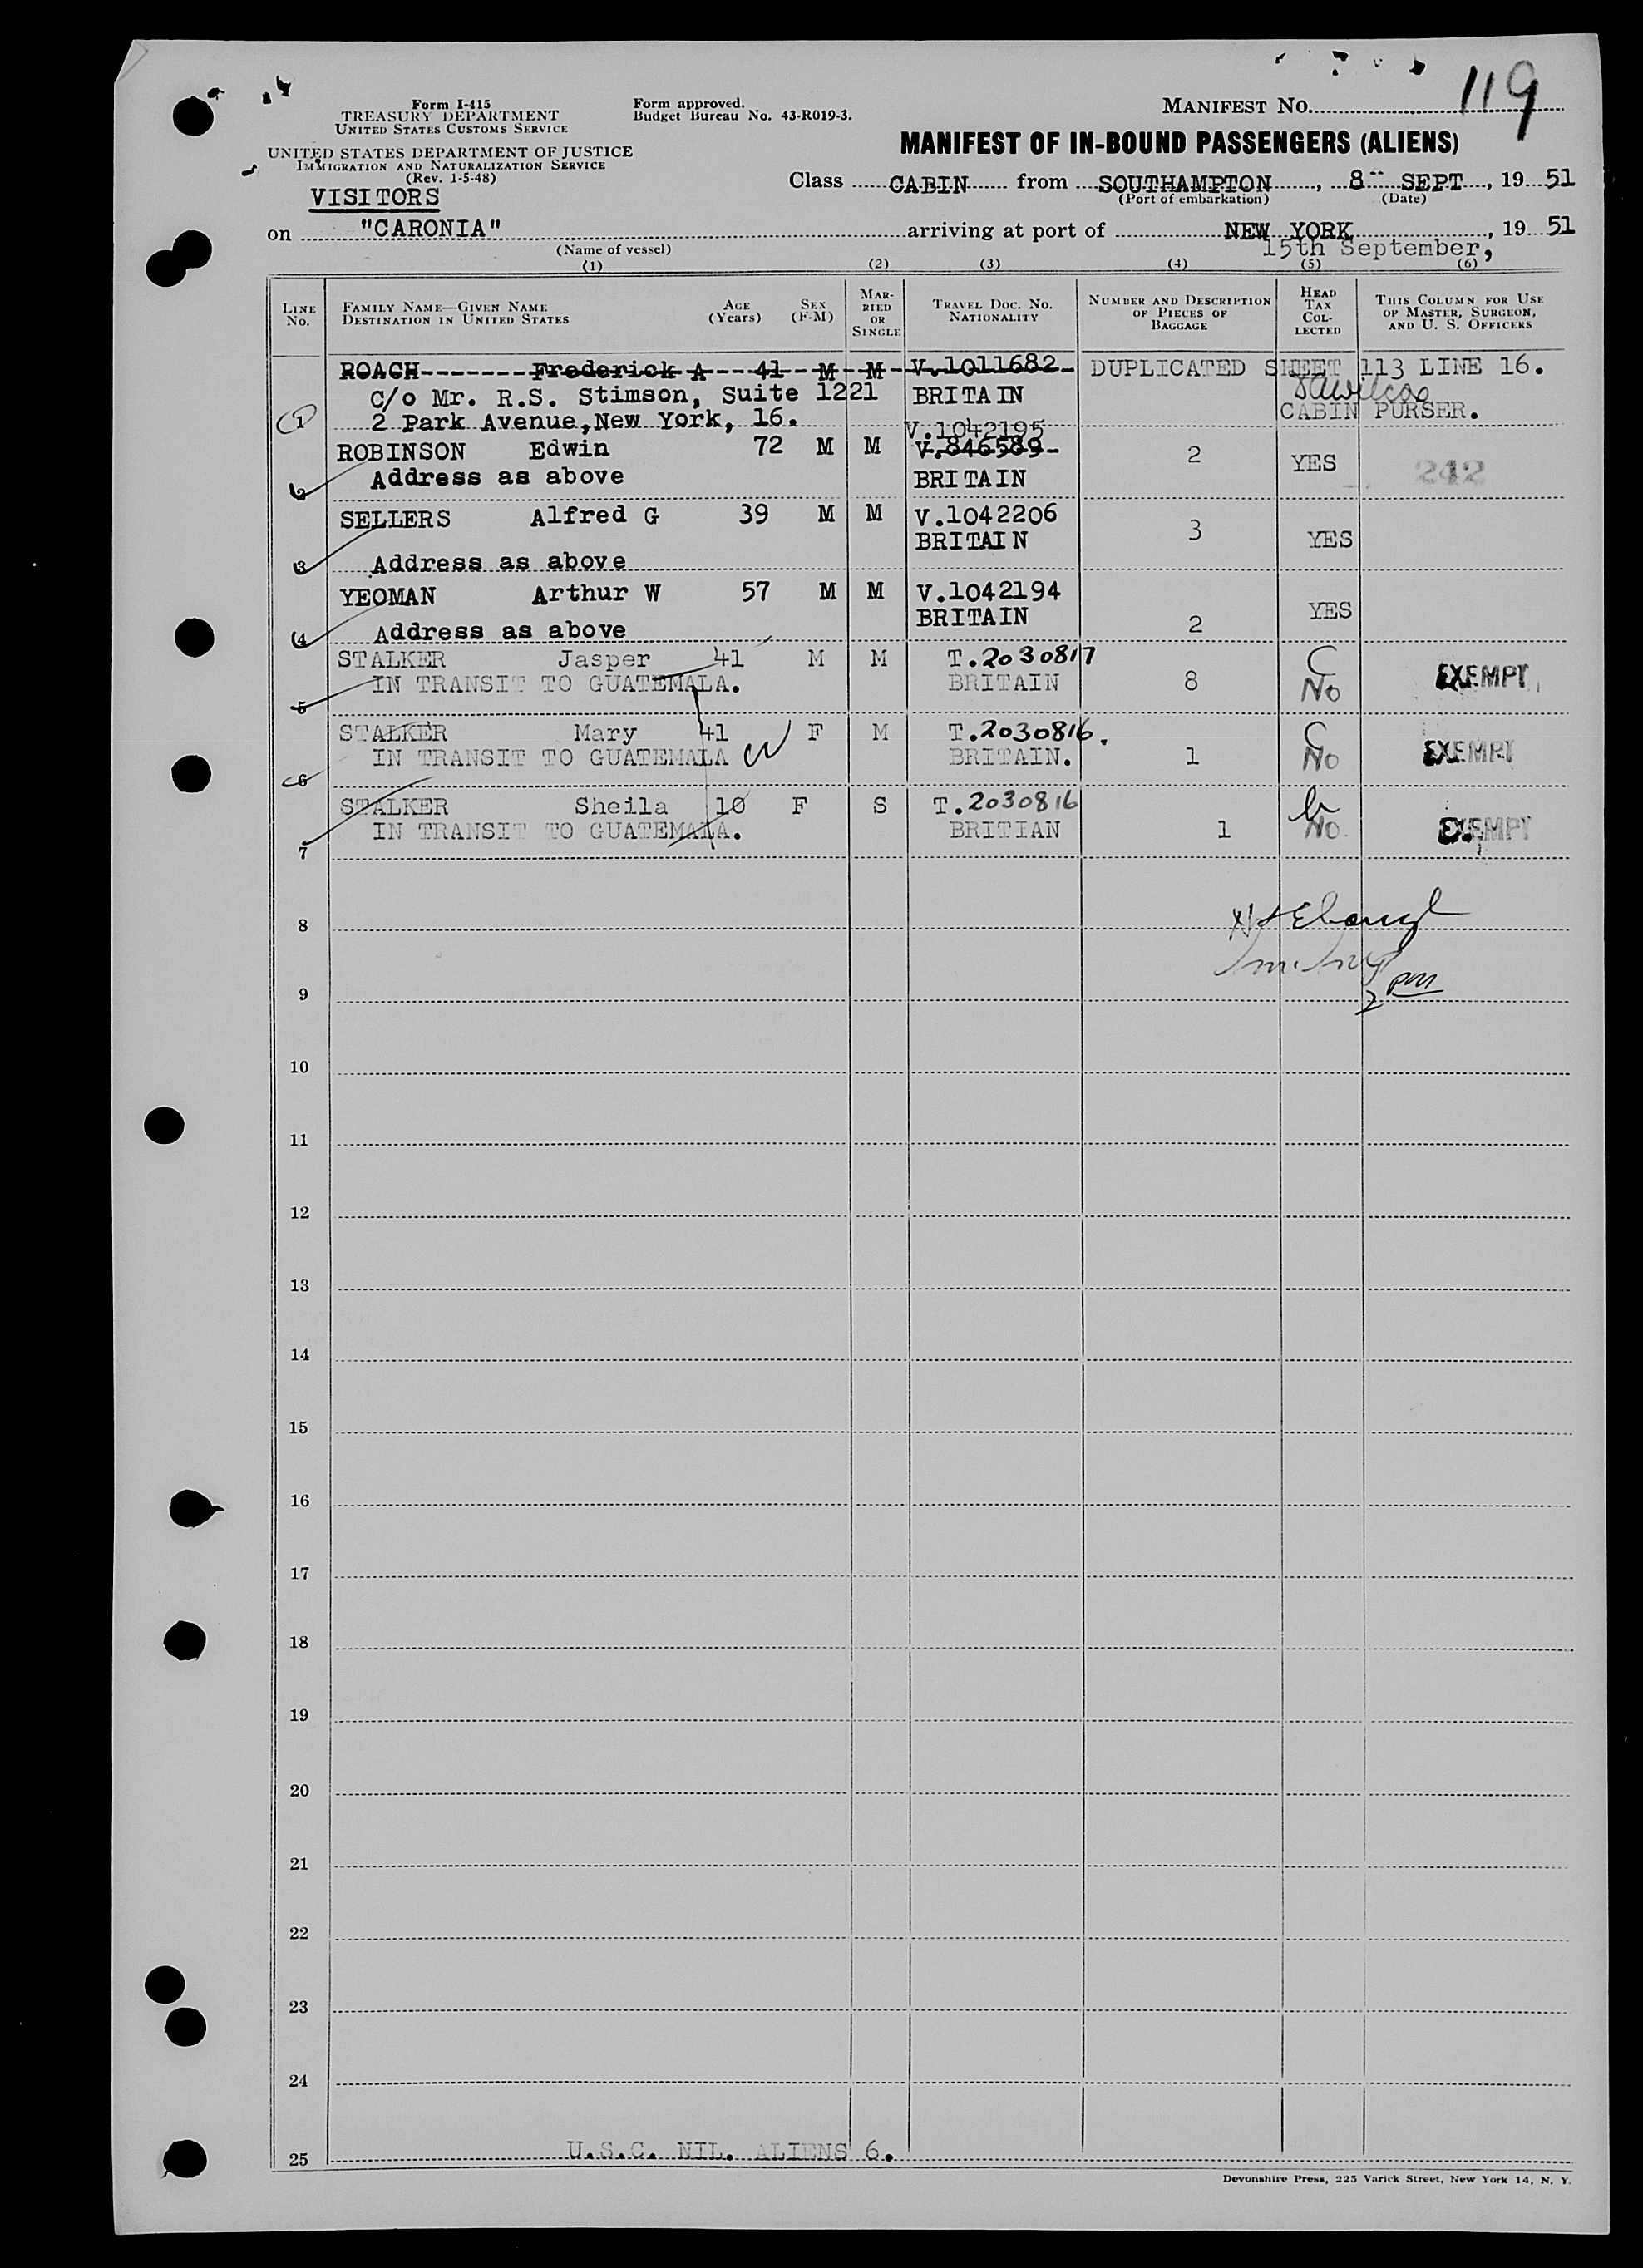 119
Form I-415
TREASURY DEPARTMENT
UNITED STATES CUSTOMS SERVICE
Form approved.
Budget Bureau No. 43-R019-3.
MANIFEST NO.
UNITED STATES DEPARTMENT OF JUSTICE
IMMIGRATION AND NATURALIZATION SERVICE
(Rev. 1-5-48)
VISITORS
MANIFEST OF IN-BOUND PASSENGERS (ALIENS)
Class CABIN from SOUTHAMPTON, 8 SEPT, 19 51
(Port of embarkation) (Date)
on "CARONIA" arriving at port of NEW YORK, 19 51
(Name of vessel) 15th September,
(1) (2) (3) (4) (5) (6)
LINE No.
FAMILY NAME—GIVEN NAME
DESTINATION IN UNITED STATES
AGE (Years)
SEX (F-M)
MARRIED OR SINGLE
TRAVEL DOC. NO. NATIONALITY
NUMBER AND DESCRIPTION OF PIECES OF BAGGAGE
HEAD TAX COLLECTED
THIS COLUMN FOR USE OF MASTER, SURGEON, AND U. S. OFFICERS
ROACH-------Frederick A---41--M--M--V.1011682- DUPLICATED SHEET 113 LINE 16.
C/o Mr. R.S. Stimson, Suite 1221 BRITAIN
1 2 Park Avenue,New York, 16. CABIN PURSER.
V.1042195
ROBINSON Edwin 72 M M V.846589- 2 YES 242
2 Address as above BRITAIN
SELLERS Alfred G 39 M M V.1042206 3 YES
BRITAIN
3 Address as above
YEOMAN Arthur W 57 M M V.1042194 YES
BRITAIN
4 Address as above 2
STALKER Jasper 41 M M T.2030817 C
IN TRANSIT TO GUATEMALA. BRITAIN 8 No EXEMPT
5
STALKER Mary 41 F M T.2030816. C
IN TRANSIT TO GUATEMALA BRITAIN. 1 No EXEMPT
6
STALKER Sheila 10 F S T.2030816
IN TRANSIT TO GUATEMALA. BRITIAN 1 No. EXEMPT
7
8
9
2 pm
10
11
12
13
14
15
16
17
18
19
20
21
22
23
24
25 U.S.C. NIL. ALIENS 6.
Devonshire Press, 225 Varick Street, New York 14, N. Y.